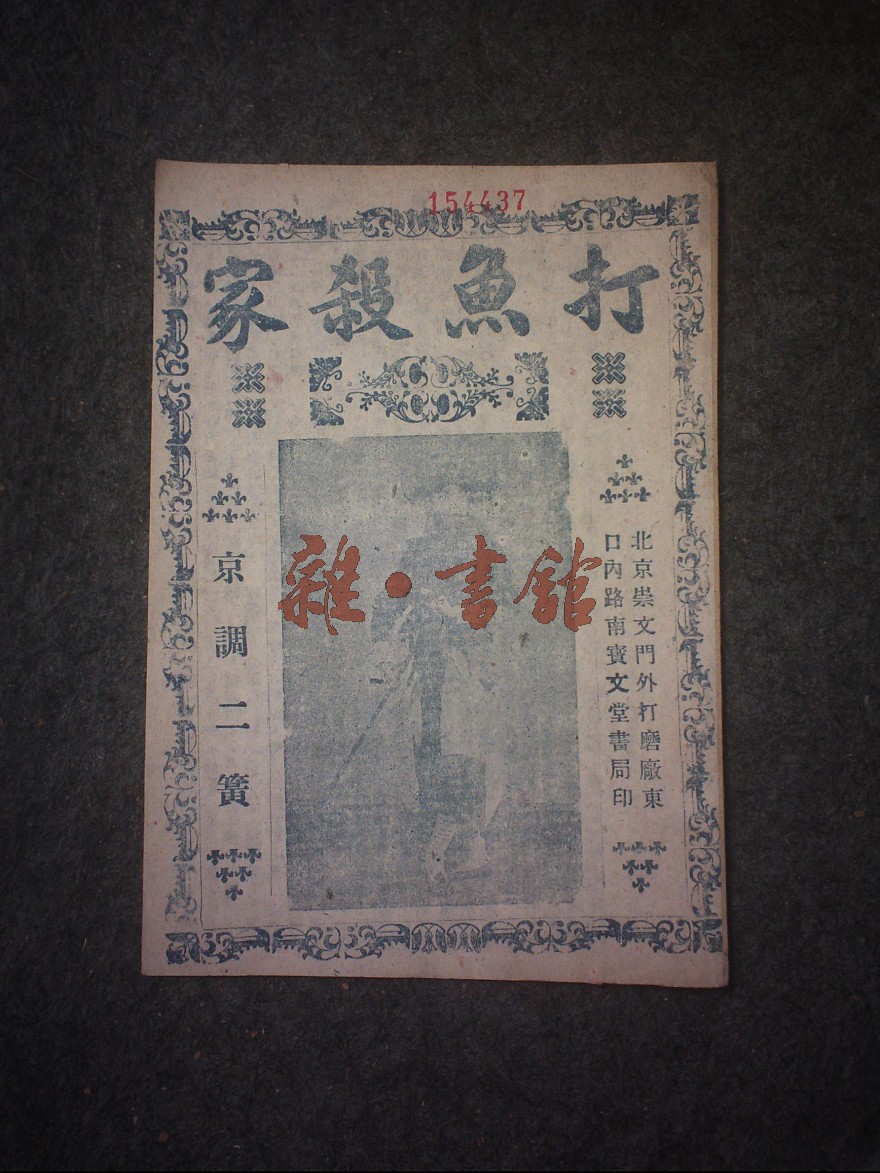 154437
打魚殺家
北京崇文門外打磨廠東
口內路南寶文堂書局印
雜·書館
京調二簧